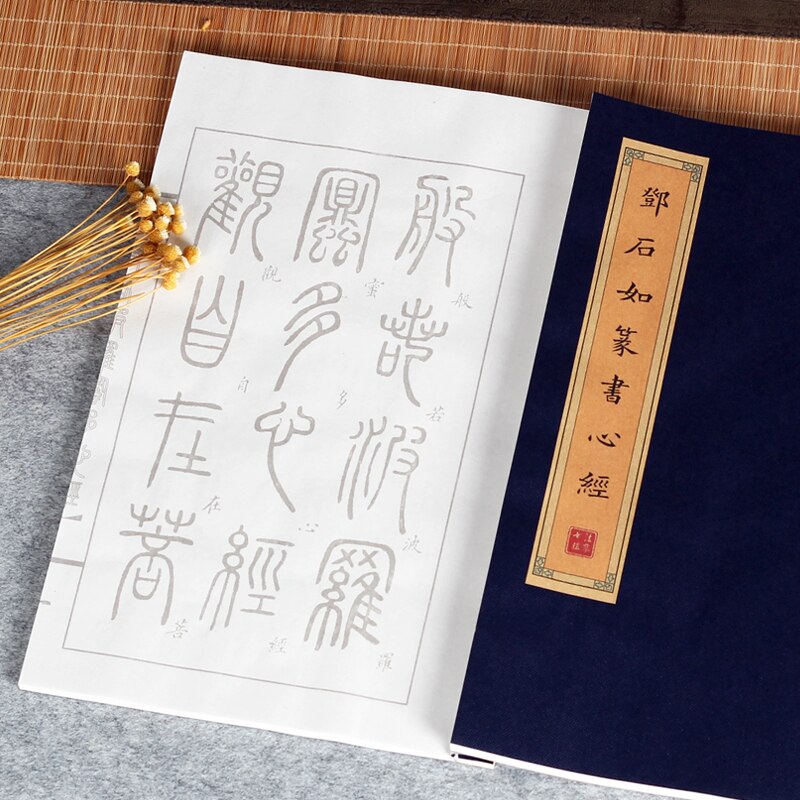 鄧石如篆書心經
般若波羅
蜜多心經
觀自在菩
般
若
波
羅
蜜
多
心
經
觀
自
在
菩